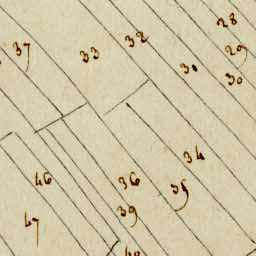 28
37
33
32
29
30
30
34
46
36
35
47
39